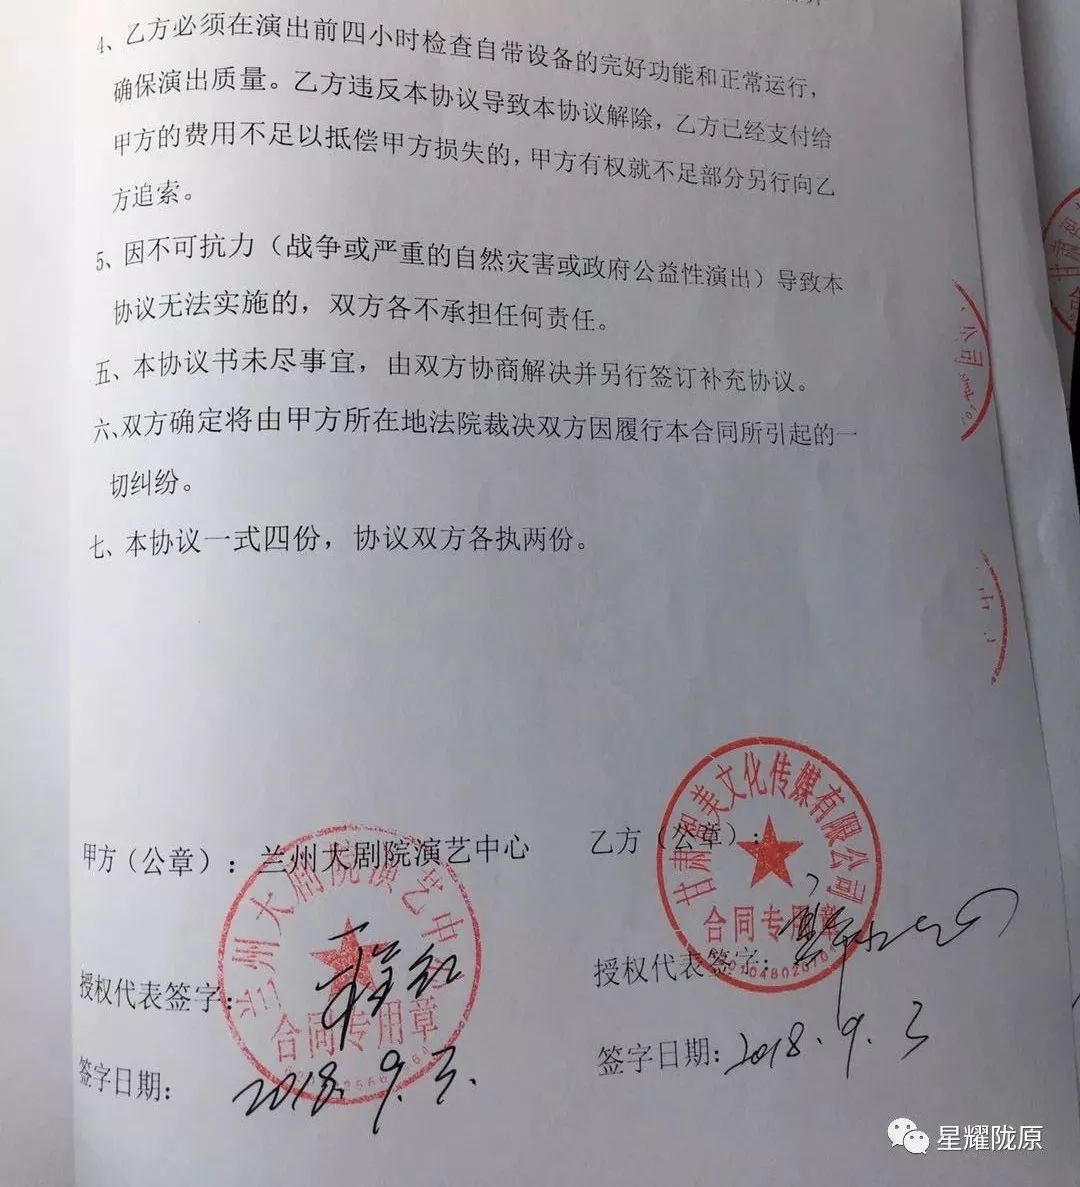 4、乙方必须在演出前四小时检查自带设备的完好功能和正常运行，
确保演出质量。乙方违反本协议导致本协议解除，乙方已经支付给
甲方的费用不足以抵偿甲方损失的，甲方有权就不足部分另行向乙
方追索。
5、因不可抗力（战争或严重的自然灾害或政府公益性演出）导致本
协议无法实施的，双方各不承担任何责任。
五、本协议书未尽事宜，由双方协商解决并另行签订补充协议。
六、双方确定将由甲方所在地法院裁决双方因履行本合同所引起的一
切纠纷。
七、本协议一式四份，协议双方各执两份。
公司
甲方（公章）：兰州大剧院演艺中心
兰州大剧院演艺中心
合同专用章
授权代表签字：
签字日期：2018.9.3.
乙方（公章）：
甘肃和美文化传媒有限公司
合同专用章
授权代表签字：
签字日期：2018.9.3
甘肃和
合
星耀陇原